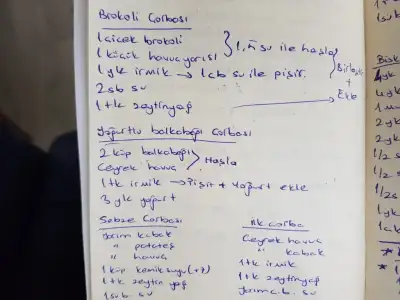 Brokoli Çorbası
1 çiçek brokoli
1 küçük havuç yarısı
1, n su ile haşla
1 yk irmik → 1 çb su ile pişir.
2 sb su
1 tk zeytinyağ
Birleştir
+
Ekle
Yoğurtlu balkabağı Çorbası
2 küp balkabağı
Çeyrek havuç
Haşla
1 tk irmik → Pişir + Yoğurt ekle
3 yk yoğurt
Sebze Çorbası
Yarım kabak
" patates
" havuç
1 küp kemik suyu (+7)
1 tk zeytin yağ
1 sub. su
ilk çorba
Çeyrek havuç
" kabak
1 tk irmik
1 tk zeytinyağ
yarım cb. su